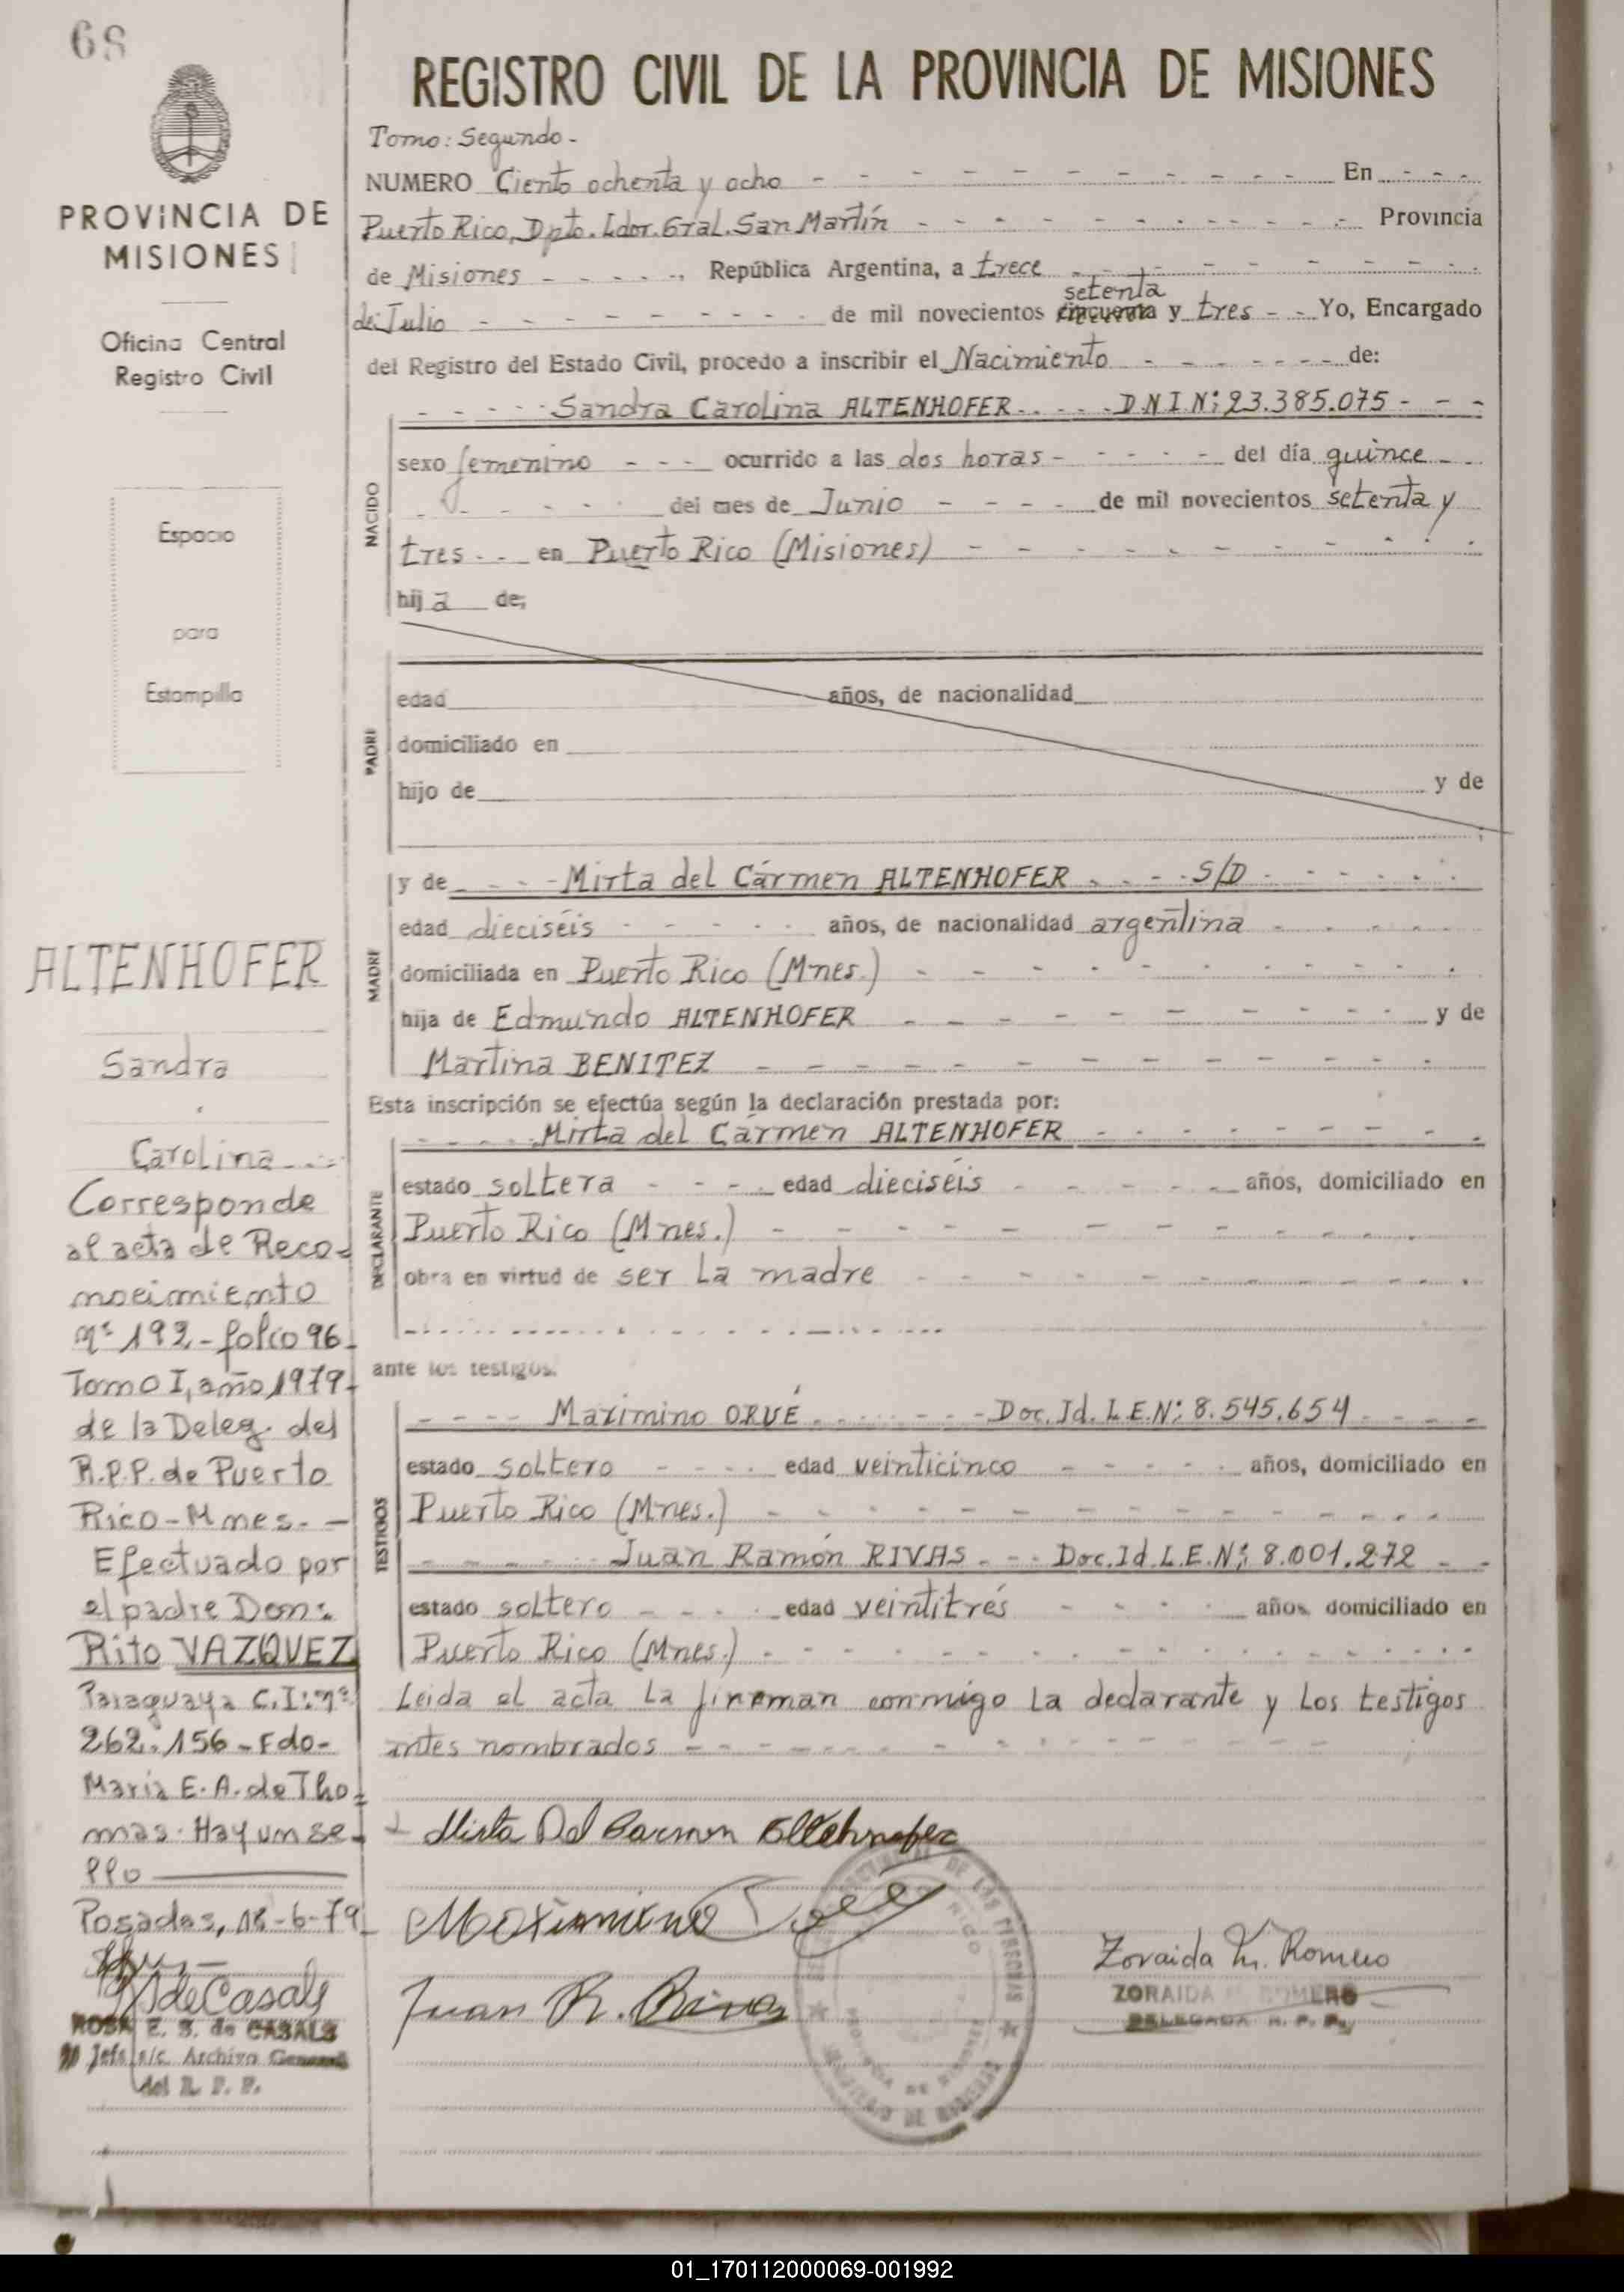 68
REGISTRO CIVIL DE LA PROVINCIA DE MISIONES
Tomo: Segundo -
NUMERO Ciento ochenta y ocho - - - En - - -
Puerto Rico, Dpto. Ldor. Gral. San Martín - - - Provincia
de Misiones - - - -, República Argentina, a trece - - -
setenta
de Julio - - - de mil novecientos cincuenta y tres - - Yo, Encargado
del Registro del Estado Civil, procedo a inscribir el Nacimiento - - - de:
- - - - Sandra Carolina ALTENHOFER - - - - D N I Nº 23.385.075 - - -
NACIDO
sexo femenino - - - ocurrido a las dos horas - - - - del día quince - -
- - - - del mes de Junio - - - - de mil novecientos setenta y
tres - - en Puerto Rico (Misiones) - - -
hija de;
PADRE
edad años, de nacionalidad
domiciliado en
hijo de y de
MADRE
y de - - - Mirta del Cármen ALTENHOFER - - - - S/D - - -
edad dieciséis - - - años, de nacionalidad argentina - - -
domiciliada en Puerto Rico (Mnes.) - - -
hija de Edmundo ALTENHOFER - - - y de
Martina BENITEZ - - -
Esta inscripción se efectúa según la declaración prestada por:
DECLARANTE
- - - - Mirta del Cármen ALTENHOFER - - -
estado soltera - - - - edad dieciséis - - - años, domiciliado en
Puerto Rico (Mnes.) - - -
obra en virtud de ser la madre - - -
ante los testigos.
TESTIGOS
- - - - Maximino ORUÉ - - - - Doc. Id. L.E.Nº 8.545.654 - - - -
estado soltero - - - - edad veinticinco - - - años, domiciliado en
Puerto Rico (Mnes.) - - -
- - - - Juan Ramón RIVAS - - - Doc. Id L.E.Nº 8.001.272 - -
estado soltero - - - - edad veintitrés - - - años domiciliado en
Puerto Rico (Mnes.) - - -
Leida el acta la firman conmigo la declarante y los testigos
antes nombrados - - -
Mirta Del Carmen
Maximino
Juan R. Rivas
Zoraida M. Romero
ZORAIDA M. ROMERO
DELEGADA R. P. P.
PROVINCIA DE
MISIONES
Oficina Central
Registro Civil
Espacio
para
Estampilla
ALTENHOFER
Sandra
Carolina
Corresponde
al acta de Reco-
nocimiento
nº 192 - folio 96-
Tomo I, año 1979-
de la Deleg. del
R.P.P. de Puerto
Rico - Mnes. -
Efectuado por
el padre Don:
Rito VAZQUEZ
Paraguaya C.I: nº
262.156 - Fdo-
María E. A. de Tho-
mas. Hay un se-
llo
Posadas, 18-6-79
de Casals
ROSA E. S. de CASALS
Jefa a/c. Archivo General
del R. P. P.
01_170112000069-001992